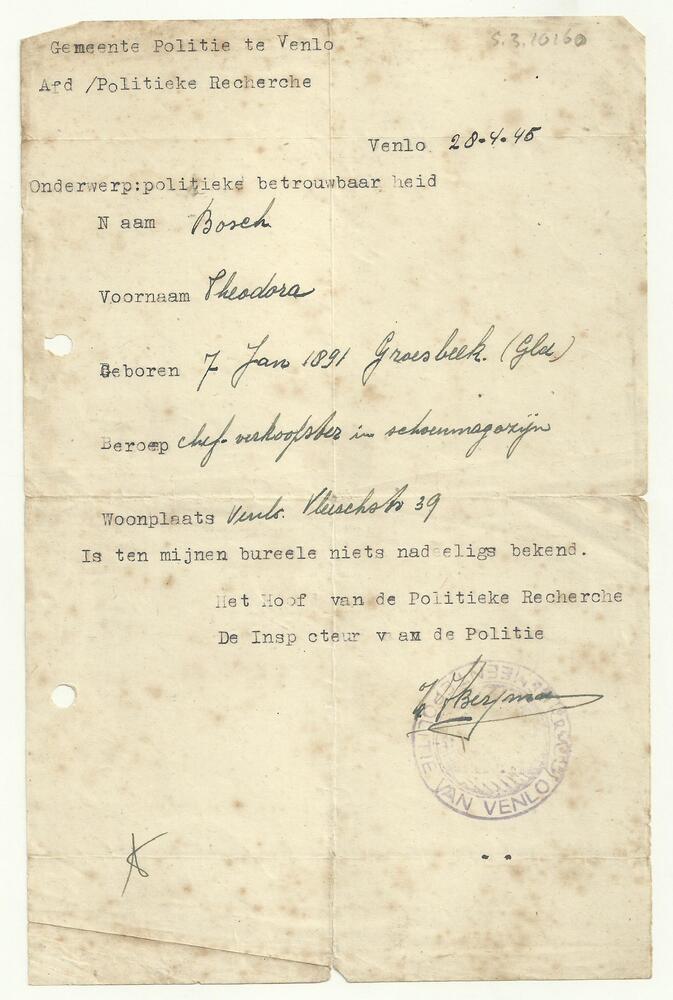 S.3.10160
Gemeente Politie te Venlo
Afd /Politieke Recherche
Venlo. 28-4-45
Onderwerp:politieke betrouwbaar heid
N aam Bosch
Voornaam Theodora
Geboren 7 Jan 1891 Groesbeek. (Gld)
Beroep chef-verkoopster in schoenmagazijn
Woonplaats Venlo. Vleeschstr 39
Is ten mijnen bureele niets nadeeligs bekend.
Het Hoof van de Politieke Recherche
De Insp cteur v am de Politie
POLITIE VAN VENLO